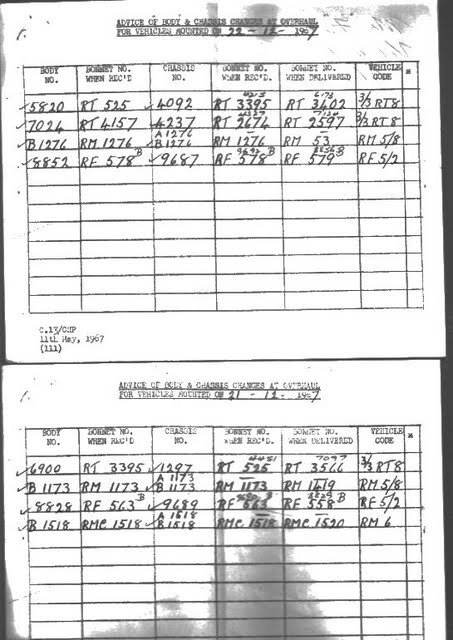 ADVICE OF BODY & CHASSIS CHANGES AT OVERHAUL
FOR VEHICLES MOUNTED ON 22 - 12 - 1967
BODY NO. BONNET NO. WHEN REC'D. CHASSIS NO. BONNET NO. WHEN REC'D. BONNET NO. WHEN DELIVERED VEHICLE CODE *
✓5820 RT 525 ✓4092 RT 3395 RT 3402 3/3 RT8
✓7024 RT 4157 ✓4237 RT 2674 RT 2597 3/3 RT8
A 1276
✓B 1276 RM 1276 ✓B 1276 RM 1276 RM 53 RM 5/8
✓8852 RF 578 B ✓9687 RF 578 B RF 579 B RF 5/2
C.13/CHP
11th May, 1967
(111)
ADVICE OF BODY & CHASSIS CHANGES AT OVERHAUL
FOR VEHICLES MOUNTED ON 21 - 12 - 1967
BODY NO. BONNET NO. WHEN REC'D. CHASSIS NO. BONNET NO. WHEN REC'D. BONNET NO. WHEN DELIVERED VEHICLE CODE *
4451 7097
✓6900 RT 3395 ✓1297 RT 525 RT 3566 3/3 RT8
A 1173
✓B 1173 RM 1173 ✓B 1173 RM 1173 RM 1419 RM 5/8
✓8828 RF 563 B ✓9689 RF 563 B RF 558 B RF 5/2
A 1518
✓B 1518 RMC 1518 ✓B 1518 RMC 1518 RMC 1520 RM 6